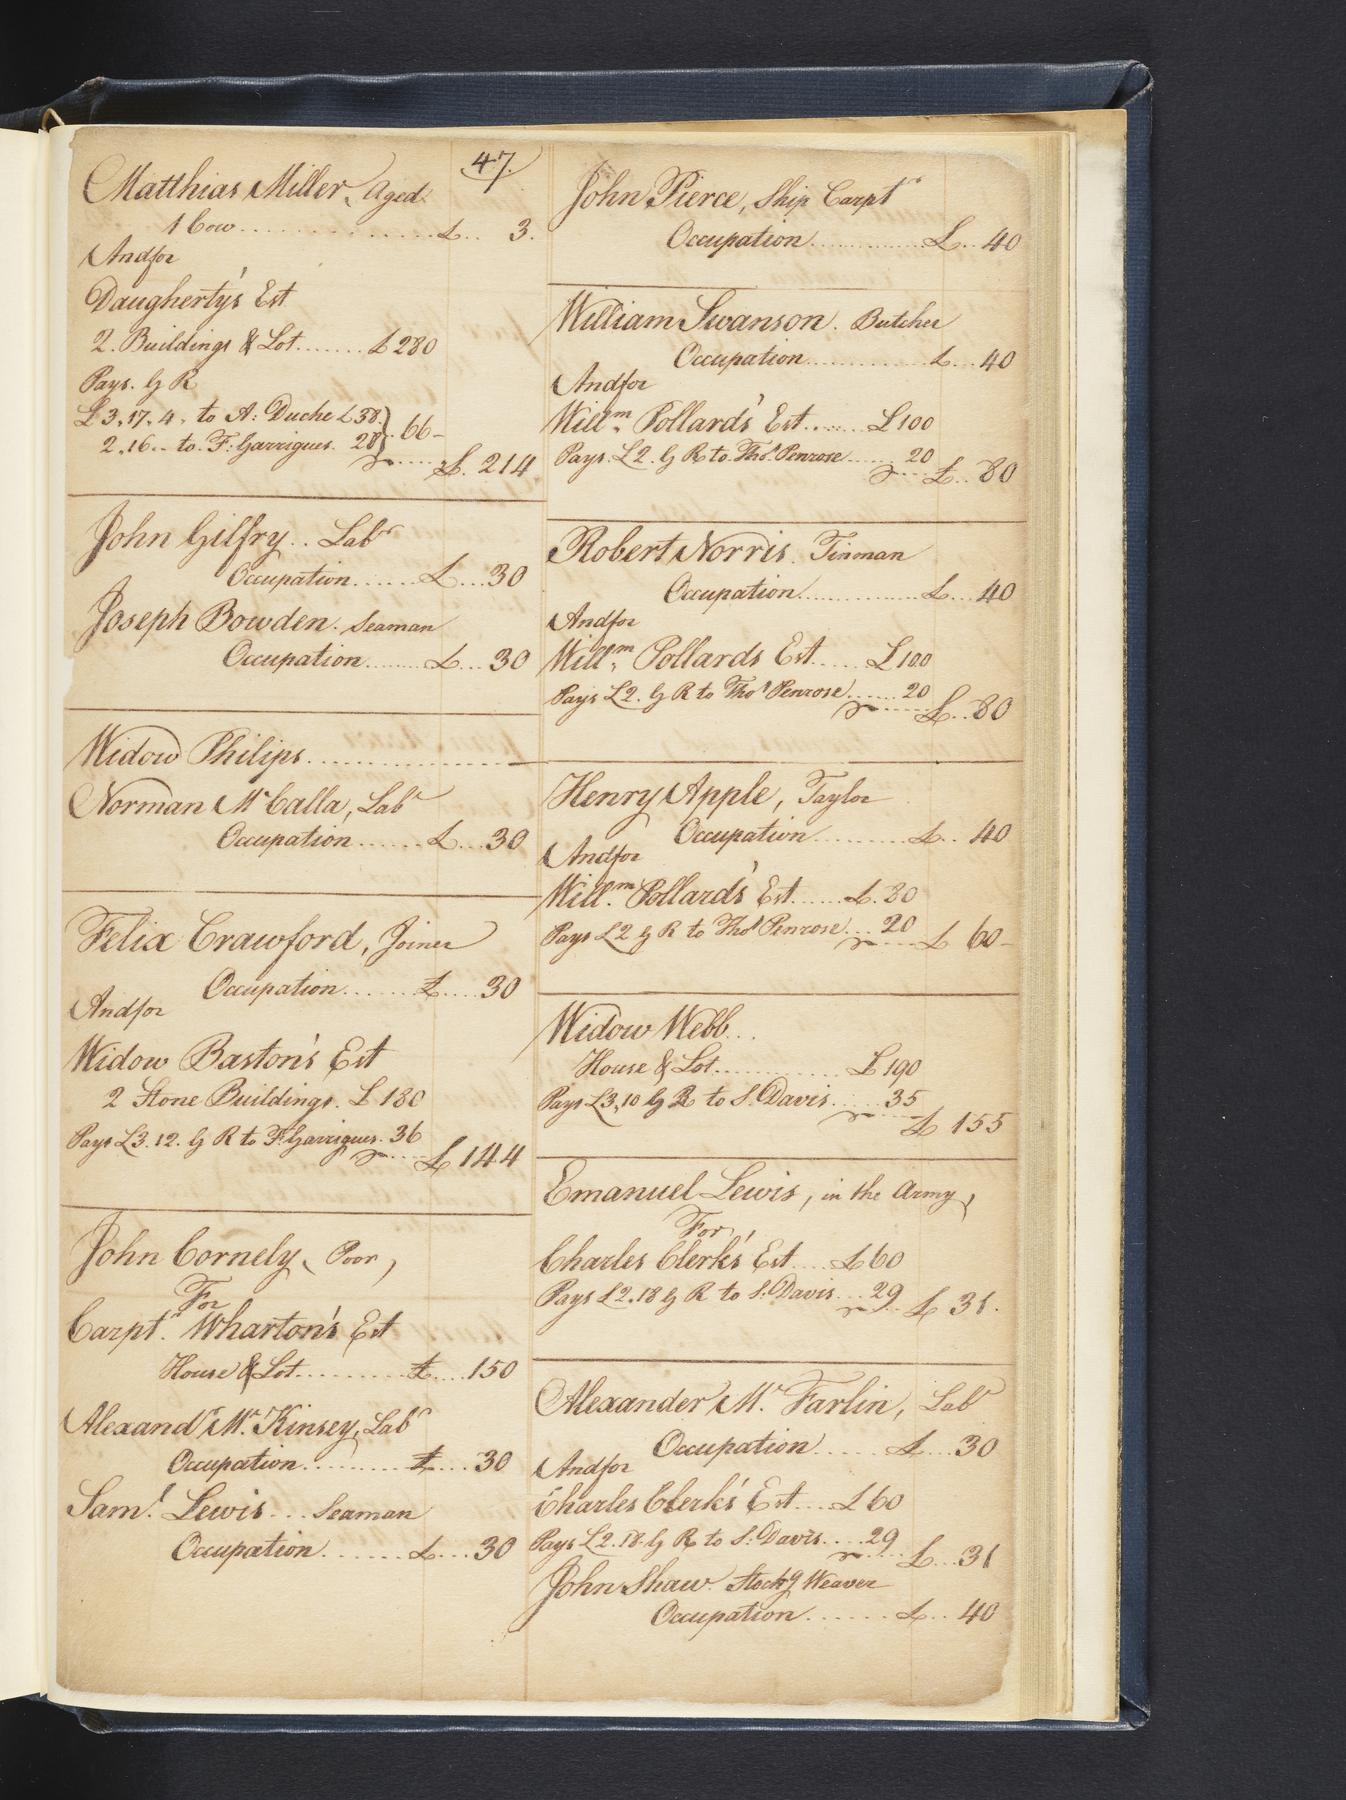 47.
Matthias Miller, Aged
1 Cow.............£.. 3.
And for
Daugherty's Est
2. Buildings & Lot.......£ 280
Pays. G R
£3,,17,,4, to A: Duche £38.} 66-
2,,16.- to F: Garrigues. 28}
£. 214
John Gilfry.. Labr
Occupation......£...30
Joseph Bowden. Seaman
Occupation.......£...30
Widow Philips...............
Norman McCalla, Labr
Occupation.......£...30
Felix Crawford, Joiner
Occupation.......£....30
And for
Widow Baston's Est
2 Stone Buildings. £ 180
Pays £3.12. G R to F: Garrigues. 36
£ 144
John Cornely, Poor,
For
Carpt. Wharton's Est
House & Lot.........£...150
Alexandr Mc. Kinsey, Labr
Occupation..........£....30
Saml. Lewis... Seaman
Occupation.......£....30
John Pierce, Ship Carptr
Occupation............£...40
William Swanson. Butcher
Occupation............£...40
And for
Willm. Pollard's Est......£100
Pays. £2. G R to Thos. Penrose......20
£..80
Robert Norris. Tinman
Occupation............£...40
And for
Willm. Pollards Est.....£100
Pays £2. G R to Thos Penrose......20
£..80
Henry Apple, Taylor
Occupation.........£..40
And for
Willm. Pollard's Est......£.80
Pays £2 G R to Thos Penrose...20
£ 60-
Widow Webb...
House & Lot............£190
Pays £3,,10 G R to S. Davis.....35
£ 155
Emanuel Lewis, in the Army,
For,
Charles Clerk's Est....£60
Pays £2.18 G R to S. Davis...29
£ 31.
Alexander Mc. Farlin, Labr
Occupation......£...30
And for
Charles Clerk's Est....£60
Pays £2.18. G R to S. Davis....29
£...31
John Shaw. Stockg Weaver
Occupation.......£..40